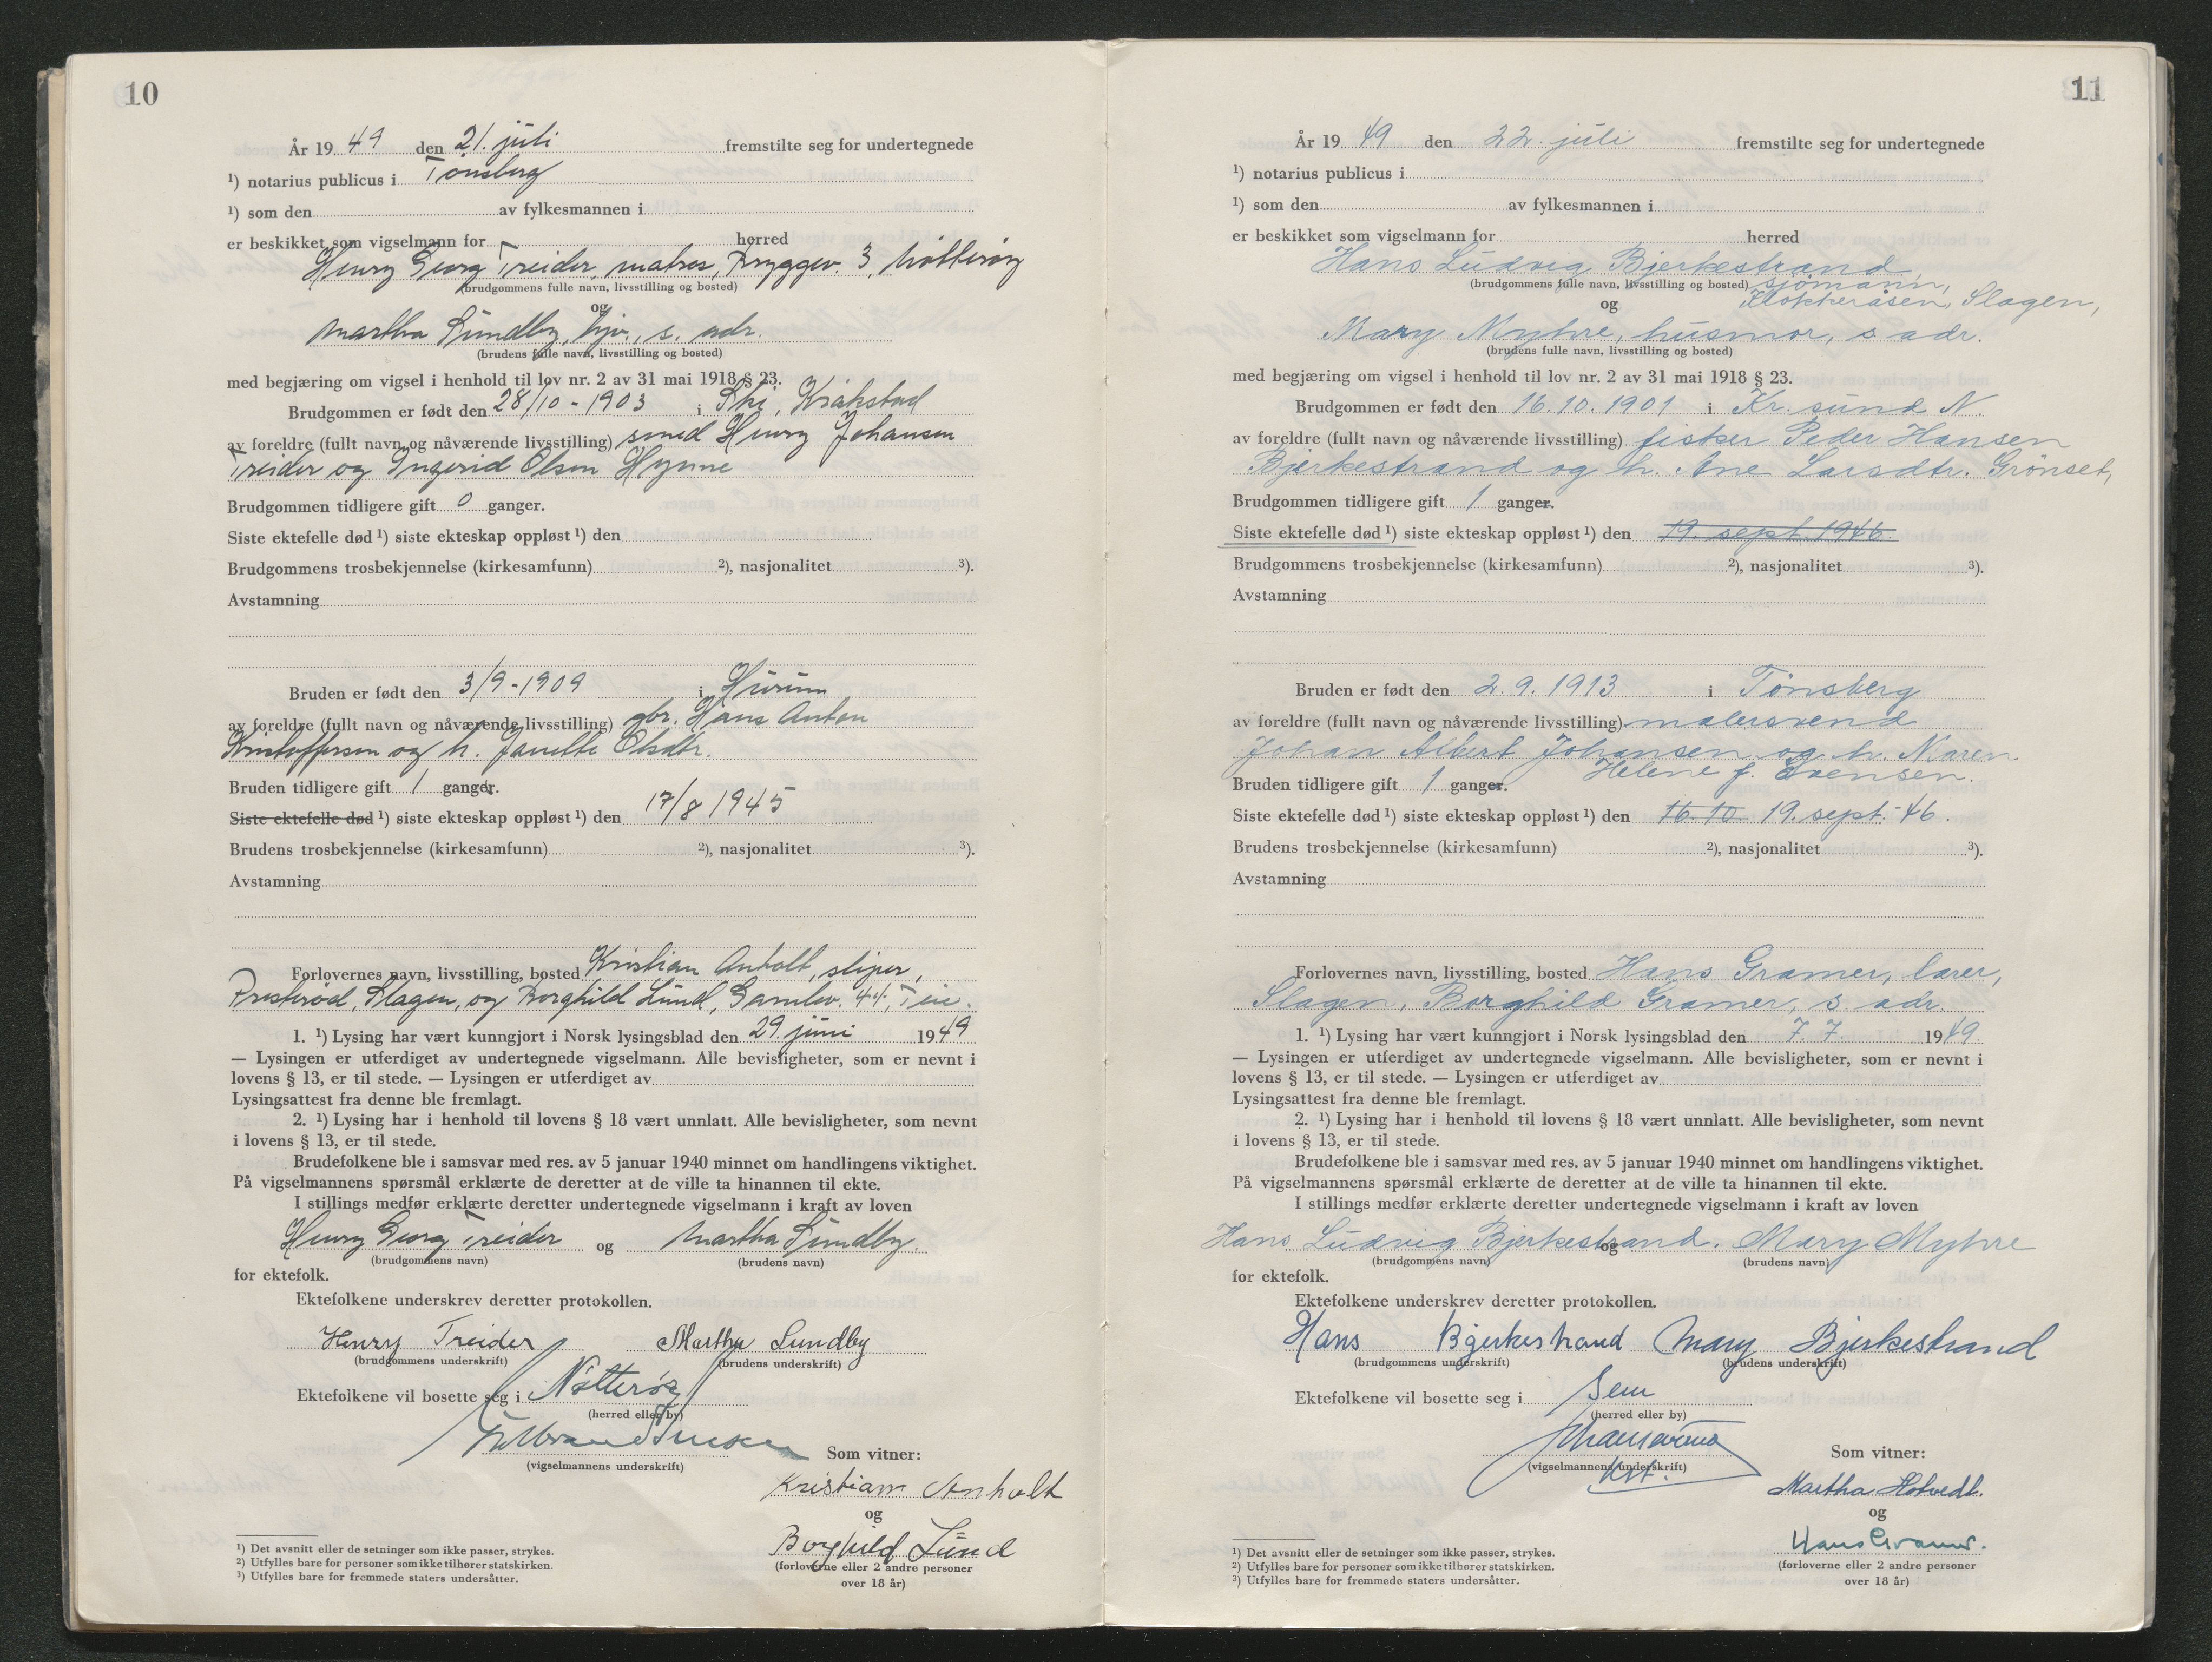 10
År 1949 den 21. juli fremstilte seg for undertegnede
¹) notarius publicus i Tönsberg
¹) som den av fylkesmannen i
er beskikket som vigselmann for herred
Henry Georg Treider, matros, Bryggev. 3, Nötteröy
(brudgommens fulle navn, livsstilling og bosted)
og
Martha Sundby, hjv., s. adr.
(brudens fulle navn, livsstilling og bosted)
med begjæring om vigsel i henhold til lov nr. 2 av 31 mai 1918 § 23.
Brudgommen er født den 28/10 - 1903 i Ski, Kråkstad
av foreldre (fullt navn og nåværende livsstilling) smed Henry Johansen
Treider og Ingerid Olsen Hynne
Brudgommen tidligere gift 0 ganger.
Siste ektefelle død ¹) siste ekteskap oppløst ¹) den
Brudgommens trosbekjennelse (kirkesamfunn) ²), nasjonalitet ³).
Avstamning
Bruden er født den 3/9 - 1909 i Hurum
av foreldre (fullt navn og nåværende livsstilling) gbr. Hans Anton
Kristoffersen og h. Janette Olsdtr.
Bruden tidligere gift 1 ganger.
Siste ektefelle død ¹) siste ekteskap oppløst ¹) den 17/8 1945
Brudens trosbekjennelse (kirkesamfunn) ²), nasjonalitet ³).
Avstamning
Forlovernes navn, livsstilling, bosted Kristian Anholt, sliper,
Presterød, Slagen, og Borghild Lund, Gamlev. 44,
1. ¹) Lysing har vært kunngjort i Norsk lysingsblad den 29. juni 1949
— Lysingen er utferdiget av undertegnede vigselmann. Alle bevisligheter, som er nevnt i
lovens § 13, er til stede. — Lysingen er utferdiget av
Lysingsattest fra denne ble fremlagt.
2. ¹) Lysing har i henhold til lovens § 18 vært unnlatt. Alle bevisligheter, som nevnt
i lovens § 13, er til stede.
Brudefolkene ble i samsvar med res. av 5 januar 1940 minnet om handlingens viktighet.
På vigselmannens spørsmål erklærte de deretter at de ville ta hinannen til ekte.
I stillings medfør erklærte deretter undertegnede vigselmann i kraft av loven
Henry Georg Treider og Martha Sundby.
(brudgommens navn) (brudens navn)
for ektefolk.
Ektefolkene underskrev deretter protokollen.
Henry Treider Martha Lundby
(brudgommens underskrift) (brudens underskrift)
Ektefolkene vil bosette seg i Nötteröy
(herred eller by)
(vigselmannens underskrift)
Som vitner:
Kristian Anholt
og
Borghild Lund
(forloverne eller 2 andre personer
over 18 år)
¹) Det avsnitt eller de setninger som ikke passer, strykes.
²) Utfylles bare for personer som ikke tilhører statskirken.
³) Utfylles bare for fremmede staters undersåtter.
11
År 1949 den 22. juli fremstilte seg for undertegnede
¹) notarius publicus i
¹) som den av fylkesmannen i
er beskikket som vigselmann for herred
Hans Ludvig Bjerkestrand,
(brudgommens fulle navn, livsstilling og bosted) sjömann,
og Klokkeråsen, Slagen,
Mary Myhre, husmor, s. adr.
(brudens fulle navn, livsstilling og bosted)
med begjæring om vigsel i henhold til lov nr. 2 av 31 mai 1918 § 23.
Brudgommen er født den 16.10.1901 i Kr.sund N.
av foreldre (fullt navn og nåværende livsstilling) fisker Peder Hansen
Bjerkestrand og h. Ane Larsdtr. Grönset,
Brudgommen tidligere gift 1 ganger.
Siste ektefelle død ¹) siste ekteskap oppløst ¹) den 19. sept. 1946.
Brudgommens trosbekjennelse (kirkesamfunn) ²), nasjonalitet ³).
Avstamning
Bruden er født den 2.9.1913 i Tönsberg
av foreldre (fullt navn og nåværende livsstilling) malersvend
Johan Albert Johansen og h. Maren
Helene f. Svensen.
Bruden tidligere gift 1 ganger.
Siste ektefelle død ¹) siste ekteskap oppløst ¹) den 16.10 19. sept. 46.
Brudens trosbekjennelse (kirkesamfunn) ²), nasjonalitet ³).
Avstamning
Forlovernes navn, livsstilling, bosted Hans Gramer, lærer,
Slagen, Borghild Gramer, s. adr.
1. ¹) Lysing har vært kunngjort i Norsk lysingsblad den 7.7. 1949.
— Lysingen er utferdiget av undertegnede vigselmann. Alle bevisligheter, som er nevnt i
lovens § 13, er til stede. — Lysingen er utferdiget av
Lysingsattest fra denne ble fremlagt.
2. ¹) Lysing har i henhold til lovens § 18 vært unnlatt. Alle bevisligheter, som nevnt
i lovens § 13, er til stede.
Brudefolkene ble i samsvar med res. av 5 januar 1940 minnet om handlingens viktighet.
På vigselmannens spørsmål erklærte de deretter at de ville ta hinannen til ekte.
I stillings medfør erklærte deretter undertegnede vigselmann i kraft av loven
Hans Ludvig Bjerkestrand. og Mary Myhre
(brudgommens navn) (brudens navn)
for ektefolk.
Ektefolkene underskrev deretter protokollen.
Hans Bjerkestrand Mary Bjerkestrand
(brudgommens underskrift) (brudens underskrift)
Ektefolkene vil bosette seg i Sem
(herred eller by)
(vigselmannens underskrift)
Som vitner:
Martha Hotvedt.
og
Hans Gramer.
(forloverne eller 2 andre personer
over 18 år)
¹) Det avsnitt eller de setninger som ikke passer, strykes.
²) Utfylles bare for personer som ikke tilhører statskirken.
³) Utfylles bare for fremmede staters undersåtter.